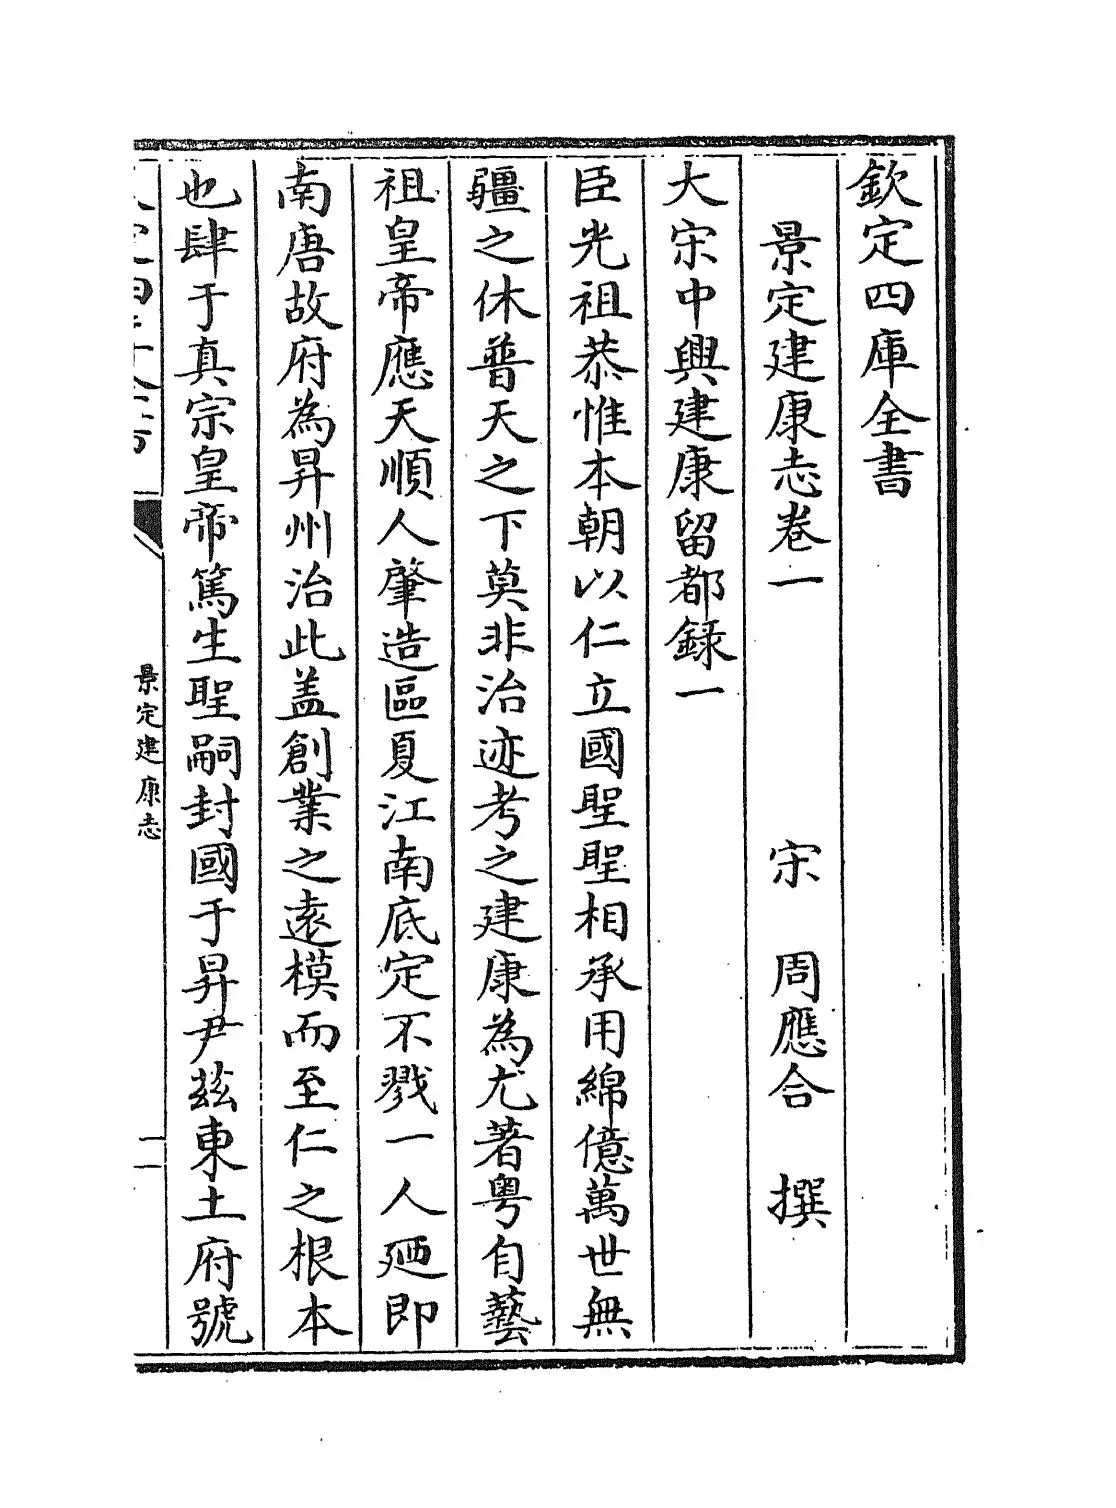 欽定四庫全書
景定建康志卷一　宋　周應合　撰
大宋中興建康留都錄一
臣光祖恭惟本朝以仁立國聖聖相承用綿億萬世無
疆之休普天之下莫非治迹考之建康為尤著粤自藝
祖皇帝應天順人肇造區夏江南底定不戮一人廼即
南唐故府為昇州治此盖創業之遠模而至仁之根本
也肆于真宗皇帝篤生聖嗣封國于昇尹兹東土府號
景定建康志